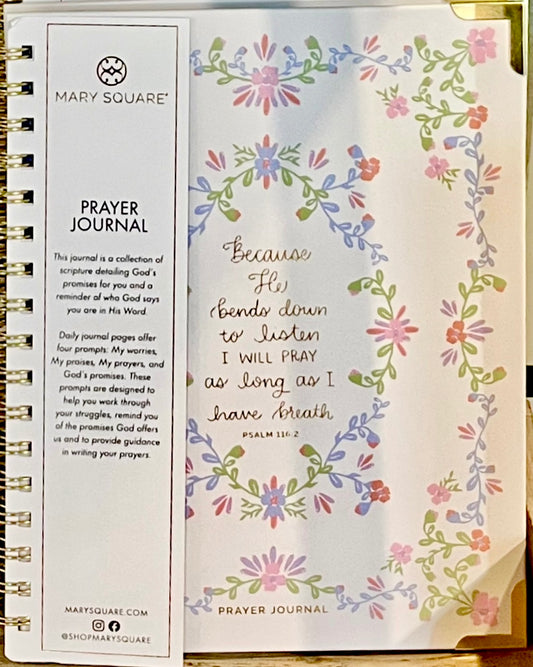 MARY SQUARE®
PRAYER
JOURNAL
This journal is a collection of
scripture detailing God's
promises for you and a
reminder of who God says
you are in His Word.
Daily journal pages offer
four prompts: My worries,
My praises, My prayers, and
God's promises. These
prompts are designed to
help you work through
your struggles, remind you
of the promises God offers
us and to provide guidance
in writing your prayers.
MARYSQUARE.COM
@SHOPMARYSQUARE
Because
He
bends down
to listen
I WILL PRAY
as long as I
have breath
PSALM 116:2
PRAYER JOURNAL